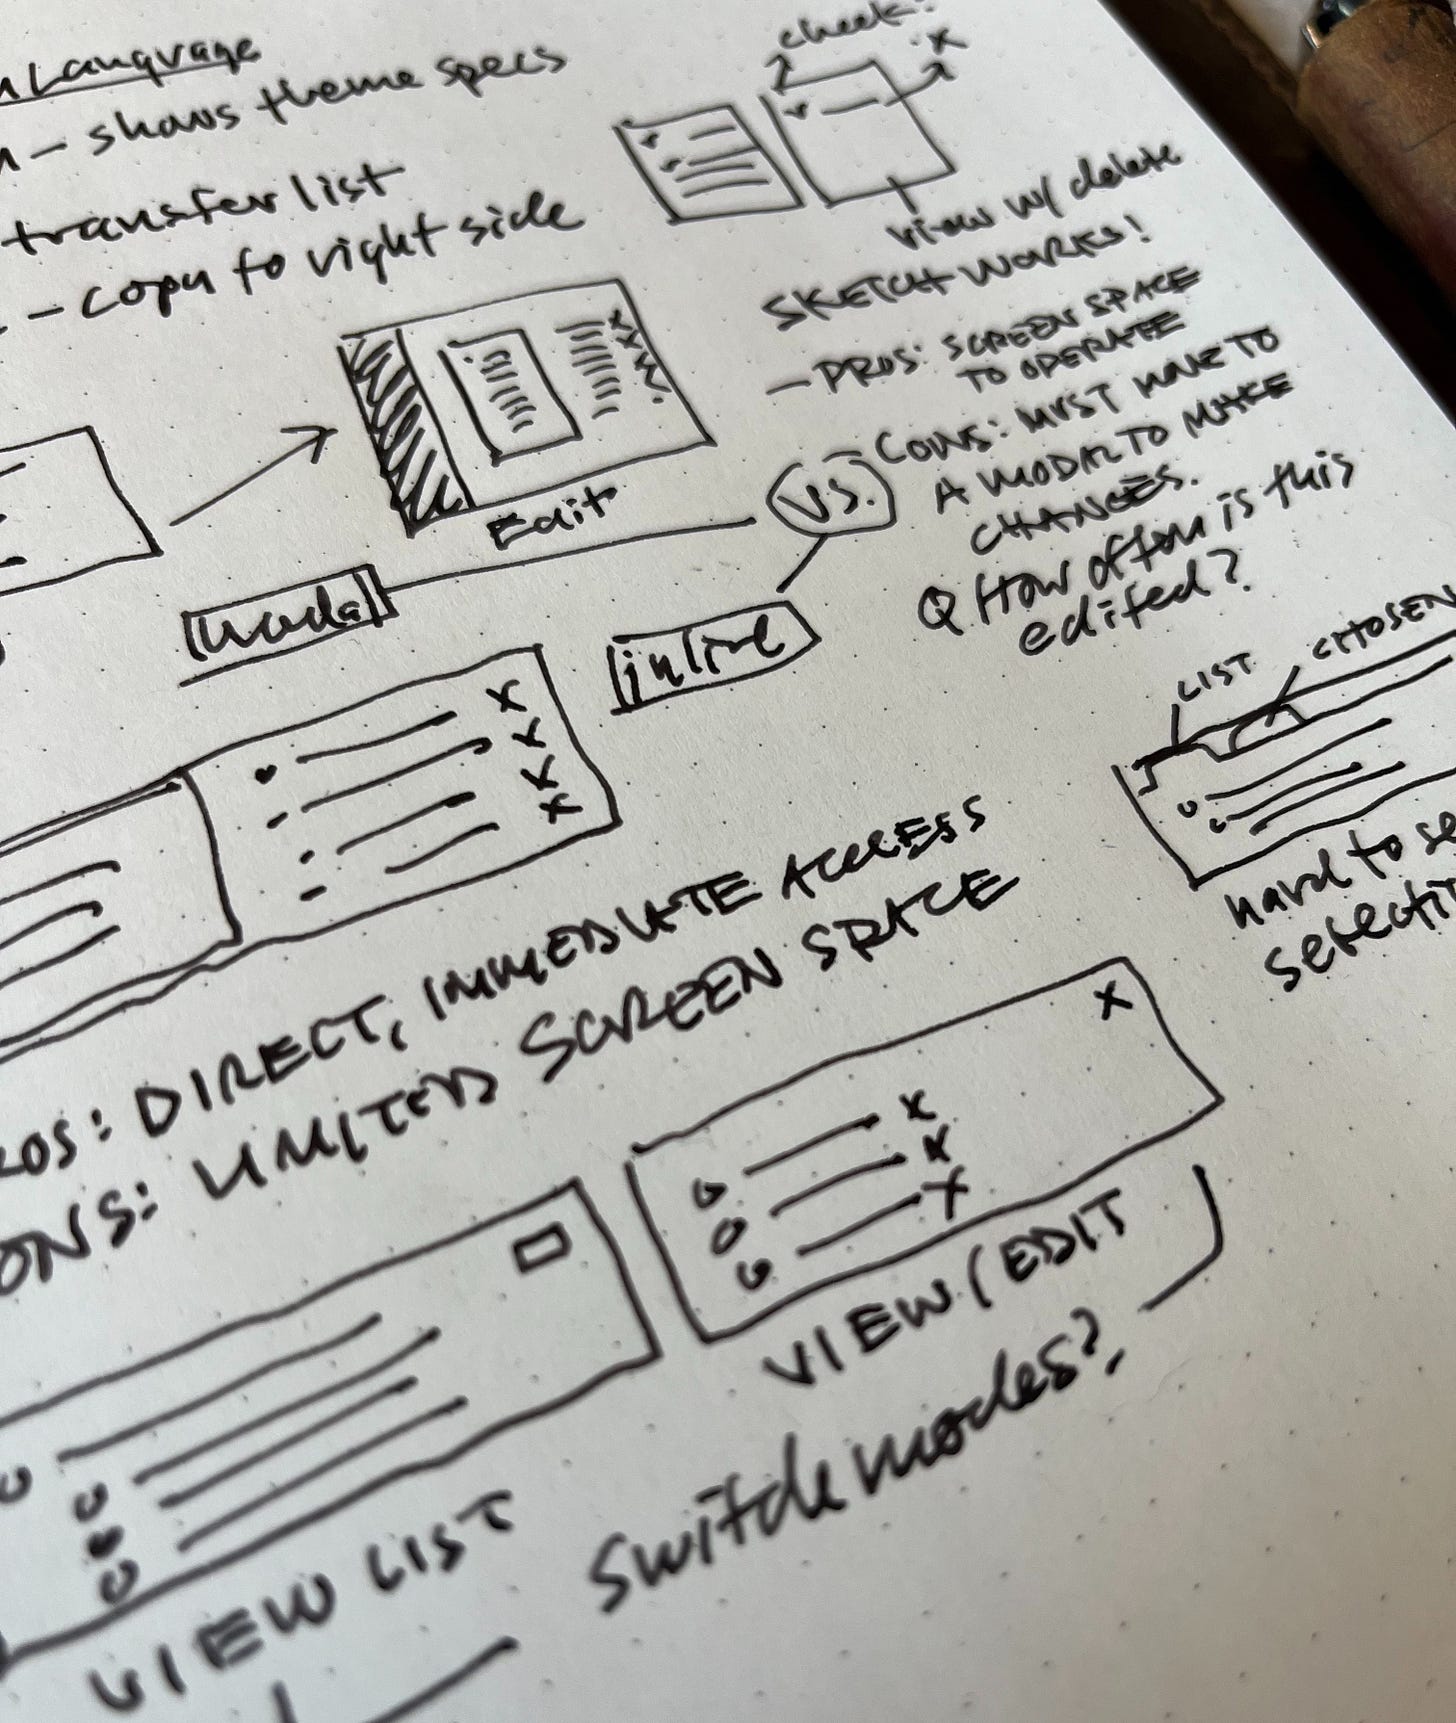 Language
- shows theme specs
transfer list
- copy to right side
check?
x
view w/ delete
SKETCH WORKS!
- PROS: SCREEN SPACE
TO OPERATE
CONS: MUST HAVE TO
A MODAL TO MAKE
CHANGES.
Q How often is this
edited?
Edit
VS.
modal
inline
x
x
x
x
LIST
CHOSEN
hard to se
selecti
ROS: DIRECT, IMMEDIATE ACCESS
ONS: LIMITED SCREEN SPACE
x
x
x
x
VIEW / EDIT
VIEW LIST
switch modes?